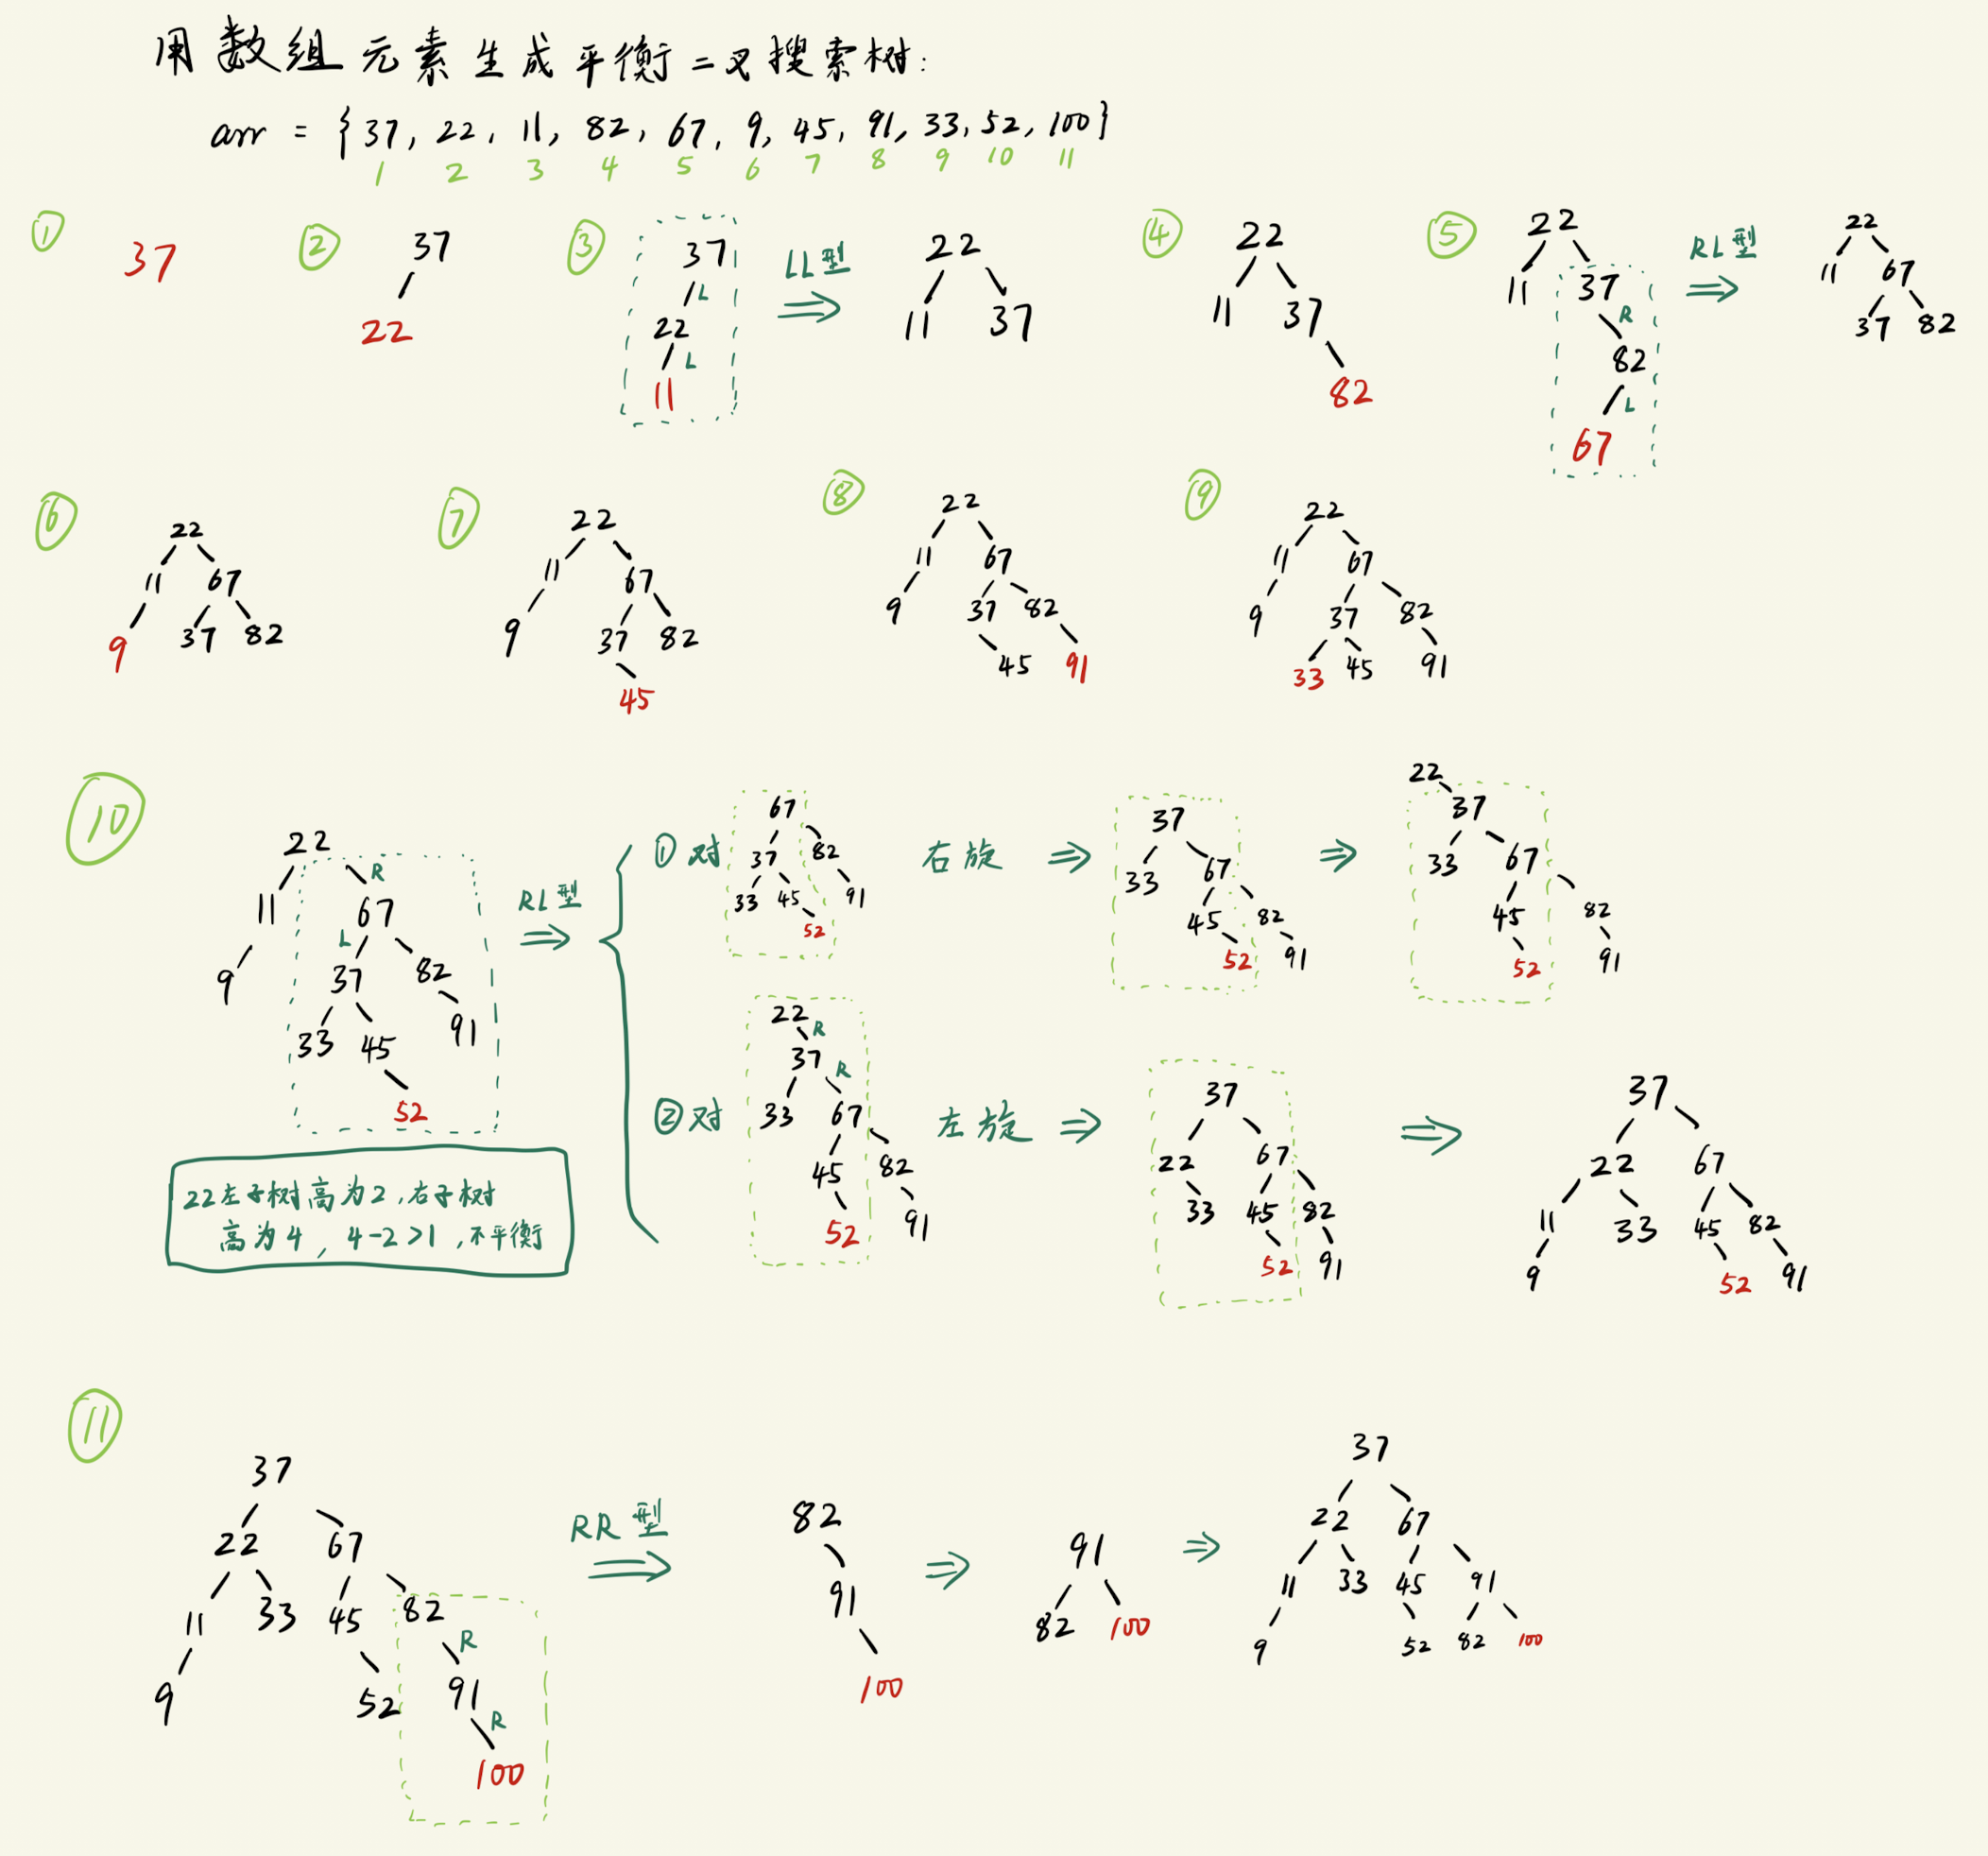 用数组元素生成平衡二叉搜索树:
arr = {37, 22, 11, 82, 67, 9, 45, 91, 33, 52, 100}
1 2 3 4 5 6 7 8 9 10 11
① ② ③ ④ ⑤
37
37
22
37
L
22
L
11
LL型
22
11 37
22
11 37
82
22
11 37
R
82
L
67
RL型
22
11 67
37 82
⑥ ⑦ ⑧ ⑨
22
11 67
9 37 82
22
11 67
9 37 82
45
22
11 67
9 37 82
45 91
22
11 67
9 37 82
33 45 91
⑩
22
R
11 67
L
9 37 82
33 45 91
52
22左子树高为2,右子树
高为4, 4-2>1,不平衡
RL型
①对
67
37 82
33 45 91
52
右旋
37
33 67
45 82
52 91
22
37
33 67
45 82
52 91
②对
22
R
37
R
33 67
45 82
52 91
左旋
37
22 67
33 45 82
52 91
37
22 67
11 33 45 82
9 52 91
⑪
37
22 67
11 33 45 82
R
9 52 91
R
100
RR型
82
91
100
91
82 100
37
22 67
11 33 45 91
9 52 82 100